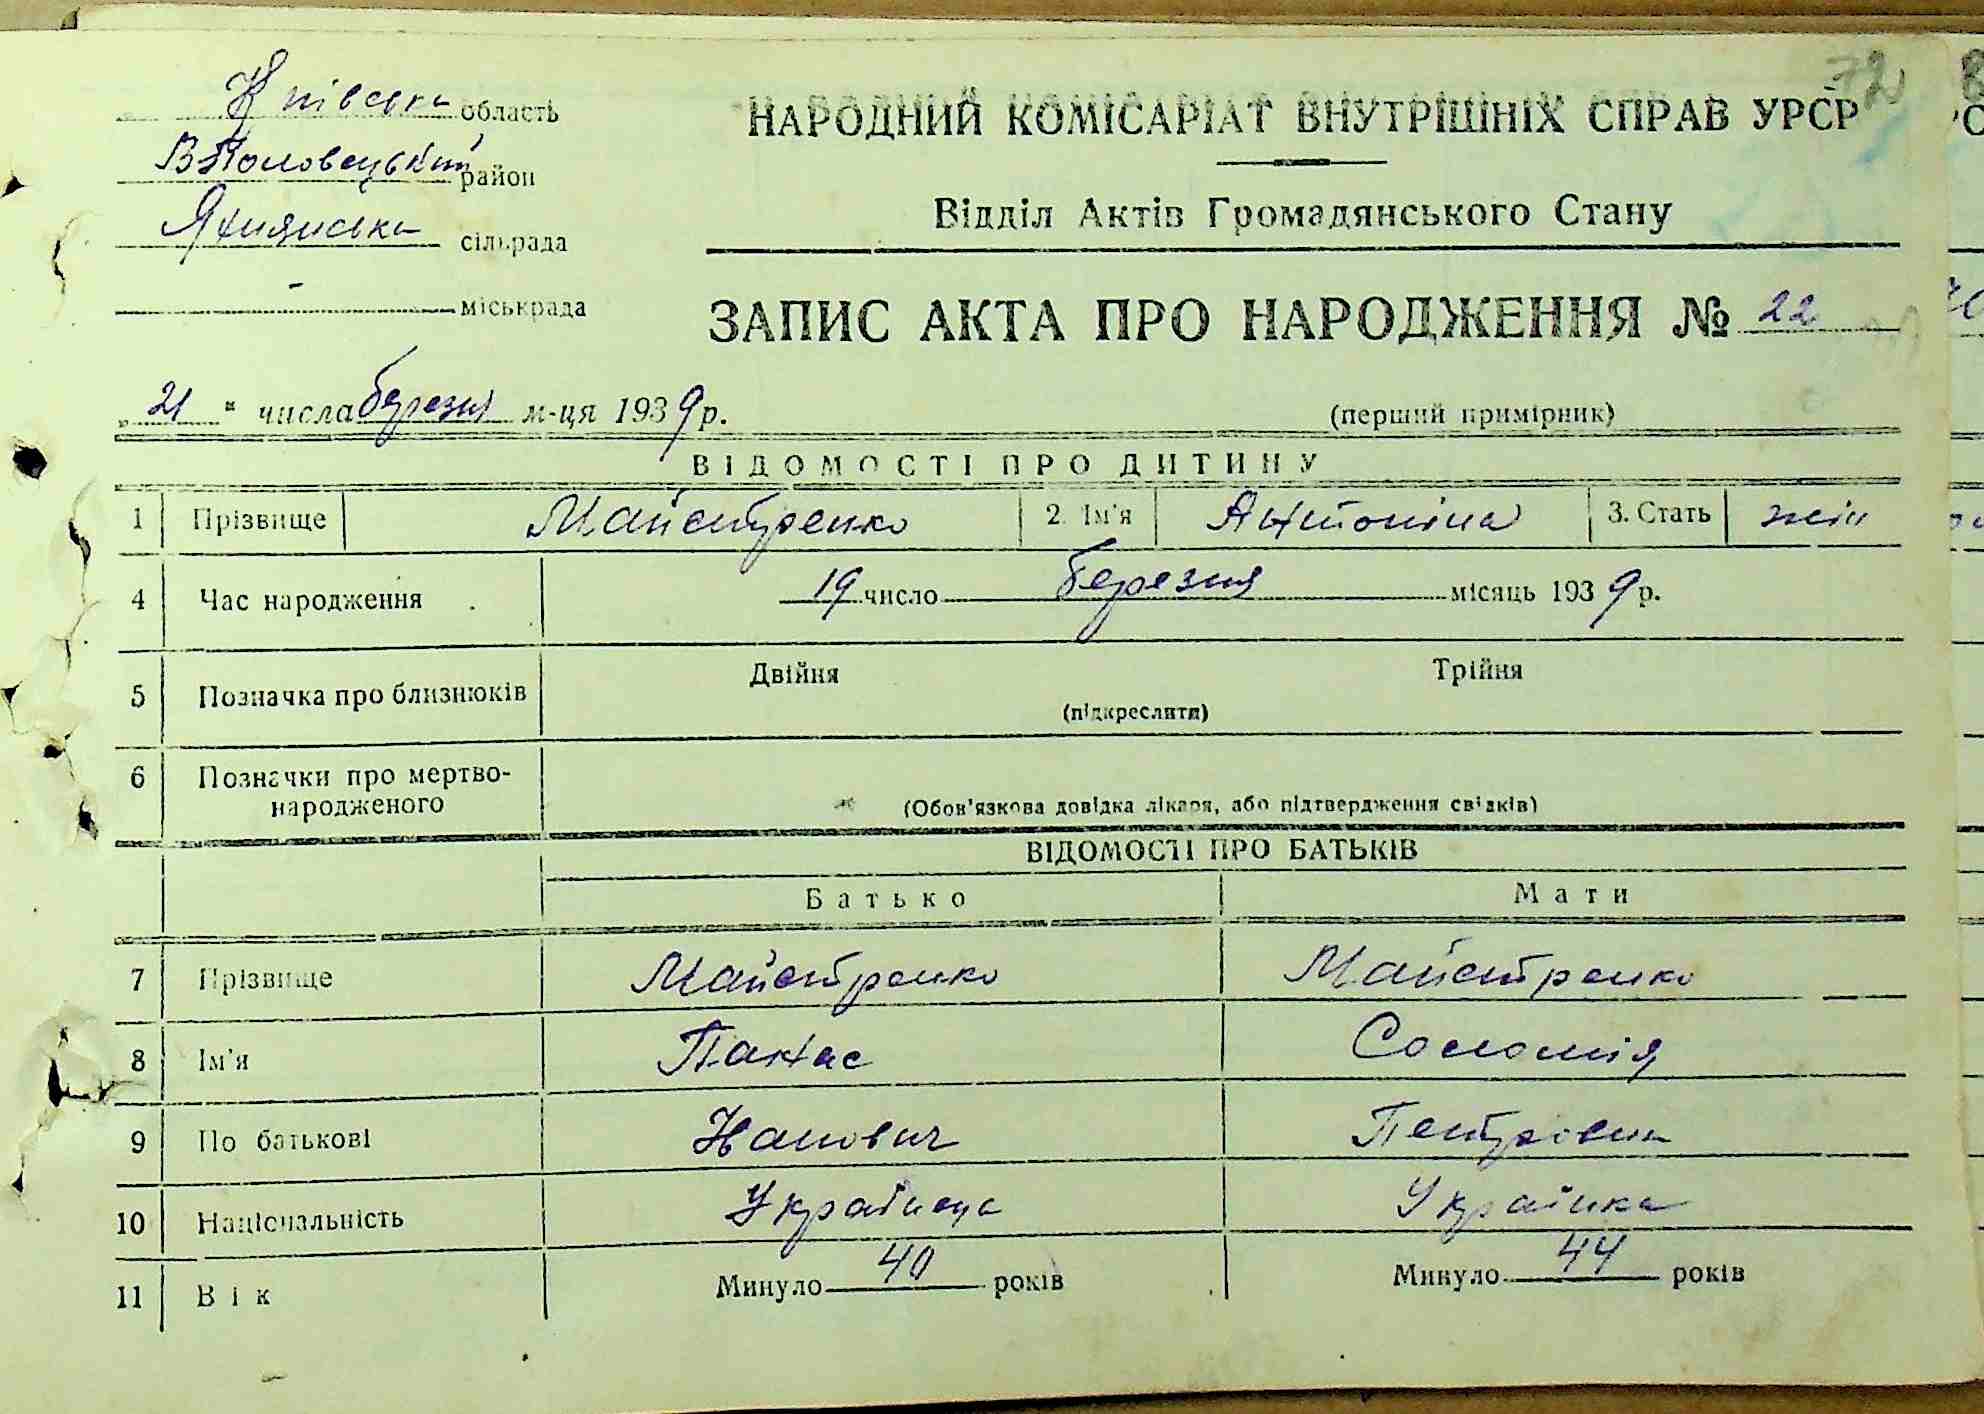 72
Київська область
В Половецький район
Яхнянська сільрада
- міськрада
НАРОДНИЙ КОМІСАРІАТ ВНУТРІШНІХ СПРАВ УРСР
Відділ Актів Громадянського Стану
ЗАПИС АКТА ПРО НАРОДЖЕННЯ № 22
„ 21 " числа березня м-ця 1939 р. (перший примірник)
ВІДОМОСТІ ПРО ДИТИНУ
1 Прізвище Майстренко 2. Ім'я Антоніна 3. Стать жін
4 Час народження 19 число березня місяць 1939 р.
5 Позначка про близнюків Двійня Трійня
(підкреслити)
6 Позначки про мертво-
народженого (Обов'язкова довідка лікаря, або підтвердження свідків)
ВІДОМОСТІ ПРО БАТЬКІВ
Батько Мати
7 Прізвище Майстренко Майстренко
8 Ім'я Панас Соломія
9 По батькові Петровна
10 Національність Українець Українка
11 Вік Минуло 40 років Минуло 44 років